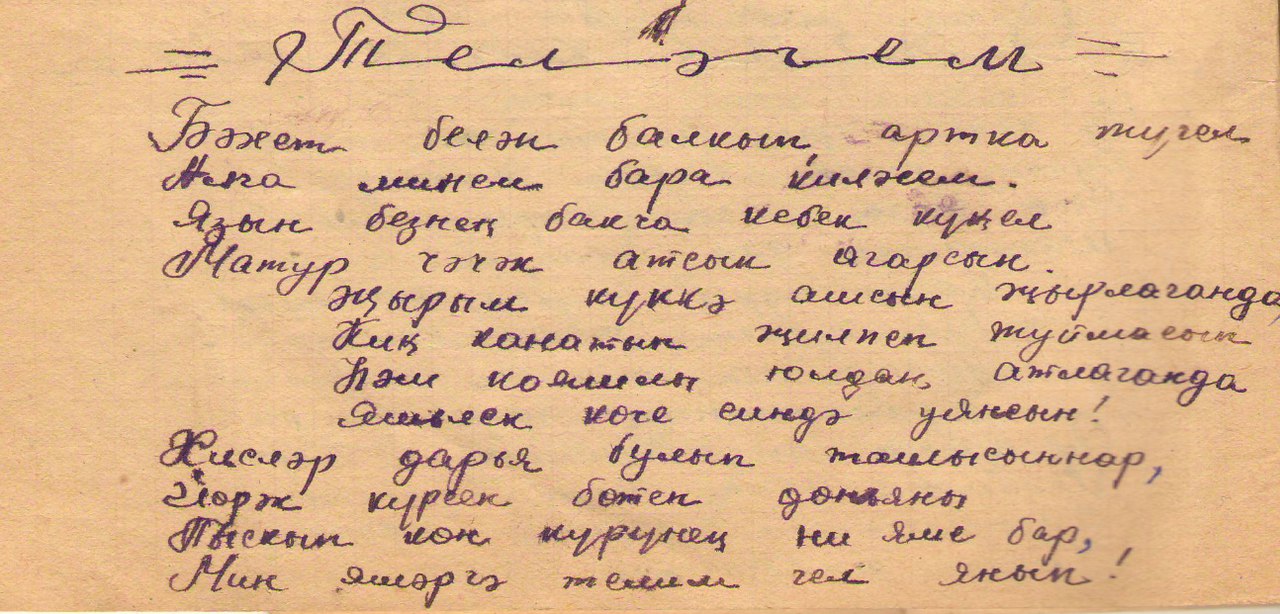 Теләчем
Бәхет белән балкып, артка түгел
Алга минем бара киләчем.
Язын безнең бакча кебек күңел
Матур чәчәк атсын ягарсын.
Җырым күккә ашсын җырлаганда,
Киң канатын җилпеп туймасын
Һәм коялмлы юлдан атлаганда
Яшьлек көче синдә уянсын!
Хисләр дарья булып ташысыннар,
Йөрәк күрсен бөтен дөньяны
Пыскып көн күрүнең ни яме бар,
Мин яшәргә телим гел янып!